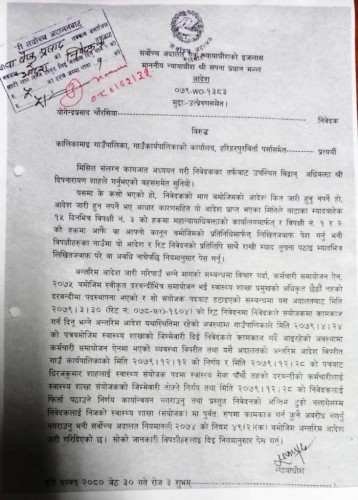 श्री सर्वोच्च अदालतबाट
सर्वोच्च अदालत, एक न्यायाधीशको इजलास
माननीय न्यायाधीश श्री सपना प्रधान मल्ल
आदेश
०७९-WO-१३८३
मुद्दाः-उत्प्रेषणसमेत।
योगेन्द्रप्रसाद चौरसिया निवेदक
विरुद्ध
कालिकामाई गाउँपालिका, गाउँकार्यपालिकाको कार्यालय, हरिहरपुरविर्ता पर्सासमेत प्रत्यर्थी
मिसिल संलग्न कागजात अध्ययन गरी निवेदकका तर्फबाट उपस्थित विद्वान् अधिवक्ता श्री
दिपनारायण शाहले गर्नुभएको बहससमेत सुनियो।
यसमा के कसो भएको हो, निवेदकको माग बमोजिमको आदेश किन जारी हुनु नपर्ने हो,
आदेश जारी हुनु नपर्ने भए आधार कारणसहित यो आदेश प्राप्त भएका मितिले बाटाका म्यादबाहेक
१५ दिनभित्र विपक्षी नं. ३ को हकमा महान्यायाधिवक्ताको कार्यालयमार्फत् र विपक्षी नं. १ र २
को हकमा आफै वा आफ्नो कानून बमोजिमको प्रतिनिधिमार्फत् लिखितजवाफ पेश गर्नु भनी
विपक्षीहरूका नाउँमा यो आदेश र रिट निवेदनको प्रतिलिपि साथै राखी म्याद सूचना पठाई म्यादभित्र
लिखितजवाफ परे वा अवधि नाघेपछि नियमानुसार पेस गर्नू।
अन्तरिम आदेश जारी गरिपाऊँ भन्ने मागको सम्बन्धमा विचार गर्दा, कर्मचारी समायोजन ऐन,
२०७५ बमोजिम स्वीकृत दरबन्दीभित्र समायोजन भई स्वास्थ्य शाखा प्रमुखको अधिकृत छैठौं तहको
दरबन्दीमा पदस्थापना भएको र सो संयोजक पदबाट हटाइएको सम्बन्धमा यस अदालतबाट मिति
२०७९।३।३० (रिट नं. ०७८-WO-१६०४) को रिट निवेदनमा निवेदकले संयोजकमा कामकाज
गर्न दिनु भन्ने अन्तरिम आदेश यथास्थितिमा रहेको अवस्थामा गाउँपालिकाले मिति २०७९।४।२४
को पत्रबमोजिम स्वास्थ्य संयोजकको जिम्मेवारी दिई निवेदकले कामकाज गर्दै आइरहेको अवस्थामा
कर्मचारी समायोजन ऐनमा भएको व्यवस्था विपरीत तथा यसै अदालतको अन्तरिम आदेश विपरीत
गाउँ कार्यपालिकाको मिति २०७९।१२।१२ को निर्णय र मिति २०७९।१२।२८ को पत्रबाट
धिरजकुमार शाहलाई स्वास्थ्य संयोजक पदमा स्वास्थ्य सेवा पाँचौं तहको दरबन्दीको कर्मचारीलाई
स्वास्थ्य शाखा संयोजकको जिम्मेवारी तोक्ने निर्णय तथा मिति २०७९।१२।२८ को निवेदकलाई
फिर्ता पठाउने निर्णय कार्यान्वयन नगराउनु तथा प्रस्तुत निवेदनको अन्तिम टुङ्गो नलागेसम्म
निवेदकलाई निजको स्वास्थ्य शाखा (संयोजक) मा पूर्ववत् रुपमा कामकाज गर्न कुनै अवरोध नगर्नु
नगराउनु भनी सर्वोच्च अदालत नियमावली २०७४ को नियम ४९(२)(क) बमोजिम अन्तरिम आदेश
जारी गरिदिएको छ। सोको जानकारी विपक्षीहरूलाई दिई नियमानुसार पेस गर्नू।
न्यायाधीश
इति सम्वत् २०८० जेठ ३० गते रोज ३ शुभम्